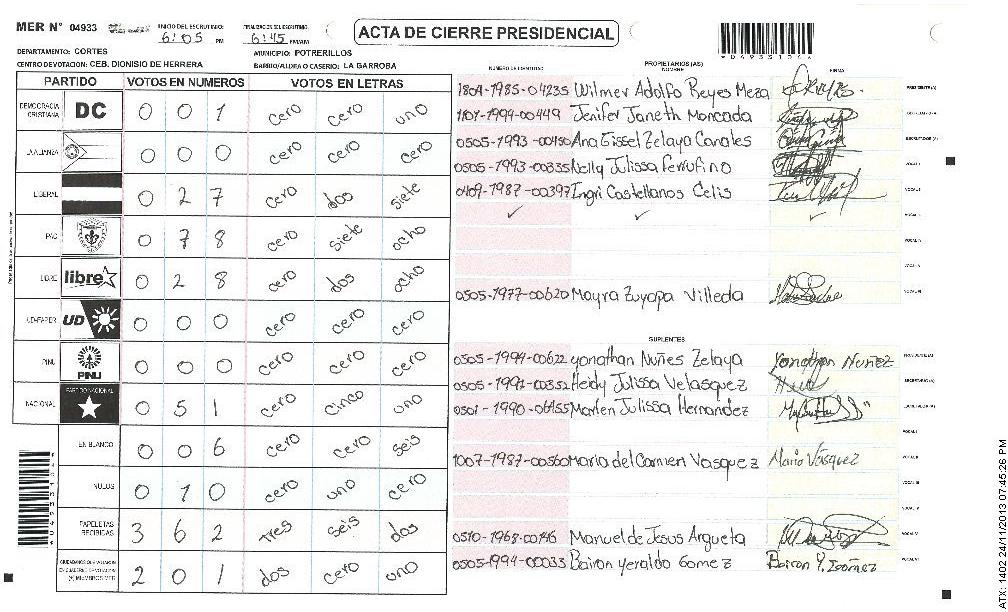 MER N° 04933 INICIO DEL ESCRUTINIO: 6:05 PM FINALIZACION DEL ESCRUTINIO: 6:45 PM/AM
ACTA DE CIERRE PRESIDENCIAL
DEPARTAMENTO: CORTES MUNICIPIO: POTRERILLOS
CENTRO DE VOTACION: CEB. DIONISIO DE HERRERA BARRIO/ALDEA O CASERIO: LA GARROBA
PARTIDO VOTOS EN NUMEROS VOTOS EN LETRAS
DEMOCRACIA CRISTIANA DC 0 0 1 cero cero uno
LA ALIANZA 0 0 0 cero cero cero
LIBERAL 0 2 7 cero dos siete
PAC 0 7 8 cero siete ocho
LIBRE libre 0 2 8 cero dos ocho
UD-FAPER UD 0 0 0 cero cero cero
PINU PINU 0 0 0 cero cero cero
NACIONAL PARTIDO NACIONAL 0 5 1 cero cinco uno
EN BLANCO 0 0 6 cero cero seis
NULOS 0 1 0 cero uno cero
PAPELETAS RECIBIDAS 3 6 2 tres seis dos
CIUDADANOS QUE VOTARON EN CUADERNO DE VOTACION (+) MIEMBROS MER 2 0 1 dos cero uno
NUMERO DE IDENTIDAD PROPIETARIOS (AS) NOMBRE FIRMA
1804-1985-04235 Wilmer Adolfo Reyes Meza PRESIDENTE (A)
1807-1994-00449 Jenifer Janeth Moncada
0505-1993-00450 Ana Gissel Zelaya Canales ESCRUTADOR (A)
0505-1993-00335 Kelly Julissa Ferrufino VOCAL I
0409-1987-00397 Ingri Castellanos Celis VOCAL II
0505-1977-00620 Mayra Zuyapa Villeda
SUPLENTES
0505-1994-00622 Yonathan Nuñes Zelaya Yonathan Nuñez PRESIDENTE (A)
0505-1991-00352 Heidy Julissa Velasquez SECRETARIO (A)
Marlen Julissa Hernandez
1007-1987-00560 Maria del Carmen Vasquez Maria Vásquez
Manuel de Jesus Argueta
0505-1994-00033 Bairon Yeraldo Gomez Bairon Y. Gomez
ATX: 1402 24/11/2013 07:45:26 PM